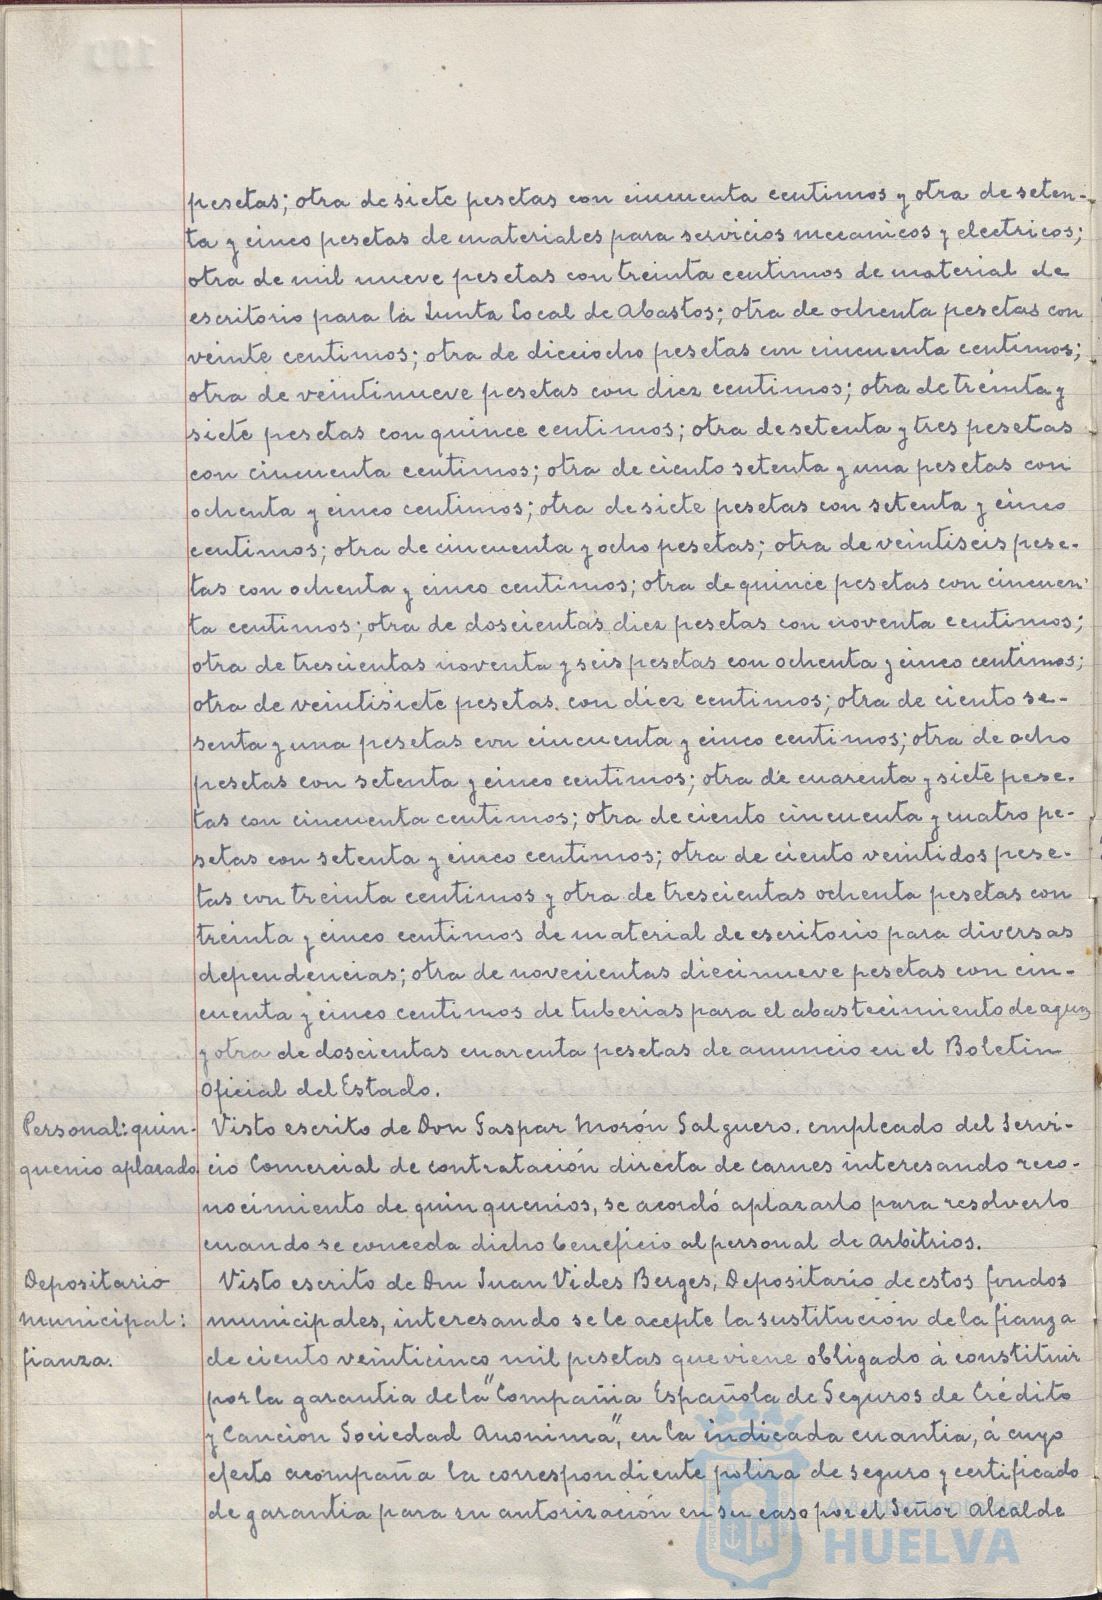 pesetas; otra de siete pesetas con cincuenta centimos y otra de seten-
ta y cinco pesetas de materiales para servicios mecanicos y electricos;
otra de mil nueve pesetas con treinta centimos de material de
escritorio para la Junta Local de Abastos; otra de ochenta pesetas con
veinte centimos; otra de dieciocho pesetas con cincuenta centimos;
otra de veintinueve pesetas con diez centimos; otra de treinta y
siete pesetas con quince centimos; otra de setenta y tres pesetas
con cincuenta centimos; otra de ciento setenta y una pesetas con
ochenta y cinco centimos; otra de siete pesetas con setenta y cinco
centimos; otra de cincuenta y ocho pesetas; otra de veintiseis pese-
tas con ochenta y cinco centimos; otra de quince pesetas con cincuen-
ta centimos; otra de doscientas diez pesetas con noventa centimos;
otra de trescientas noventa y seis pesetas con ochenta y cinco centimos;
otra de veintisiete pesetas con diez centimos; otra de ciento se-
senta y una pesetas con cincuenta y cinco centimos; otra de ocho
pesetas con setenta y cinco centimos; otra de cuarenta y siete pese-
tas con cincuenta centimos; otra de ciento cincuenta y cuatro pe-
setas con setenta y cinco centimos; otra de ciento veintidos pese-
tas con treinta centimos y otra de trescientas ochenta pesetas con
treinta y cinco centimos de material de escritorio para diversas
dependencias; otra de novecientas diecinueve pesetas con cin-
cuenta y cinco centimos de tuberias para el abastecimiento de aguas
y otra de doscientas cuarenta pesetas de anuncio en el Boletin
Oficial del Estado.
Personal: quin-
quenio aplazado
Visto escrito de Don Gaspar Morón Salguero. empleado del Servi-
cio Comercial de contratación directa de carnes interesando reco-
nocimiento de quinquenios, se acordó aplazarlo para resolverlo
cuando se conceda dicho beneficio al personal de Arbitrios.
Depositario
municipal:
fianza.
Visto escrito de Don Juan Vides Berges, Depositario de estos fondos
municipales, interesando se le acepte la sustitución de la fianza
de ciento veinticinco mil pesetas que viene obligado á constituir
por la garantia de la "Compañia Española de Seguros de Crédito
y Caucion Sociedad Anonima", en la indicada cuantia, á cuyo
efecto acompaña la correspondiente poliza de seguro y certificado
de garantia para su autorización en su caso por el Señor Alcalde
Ayuntamiento de
HUELVA